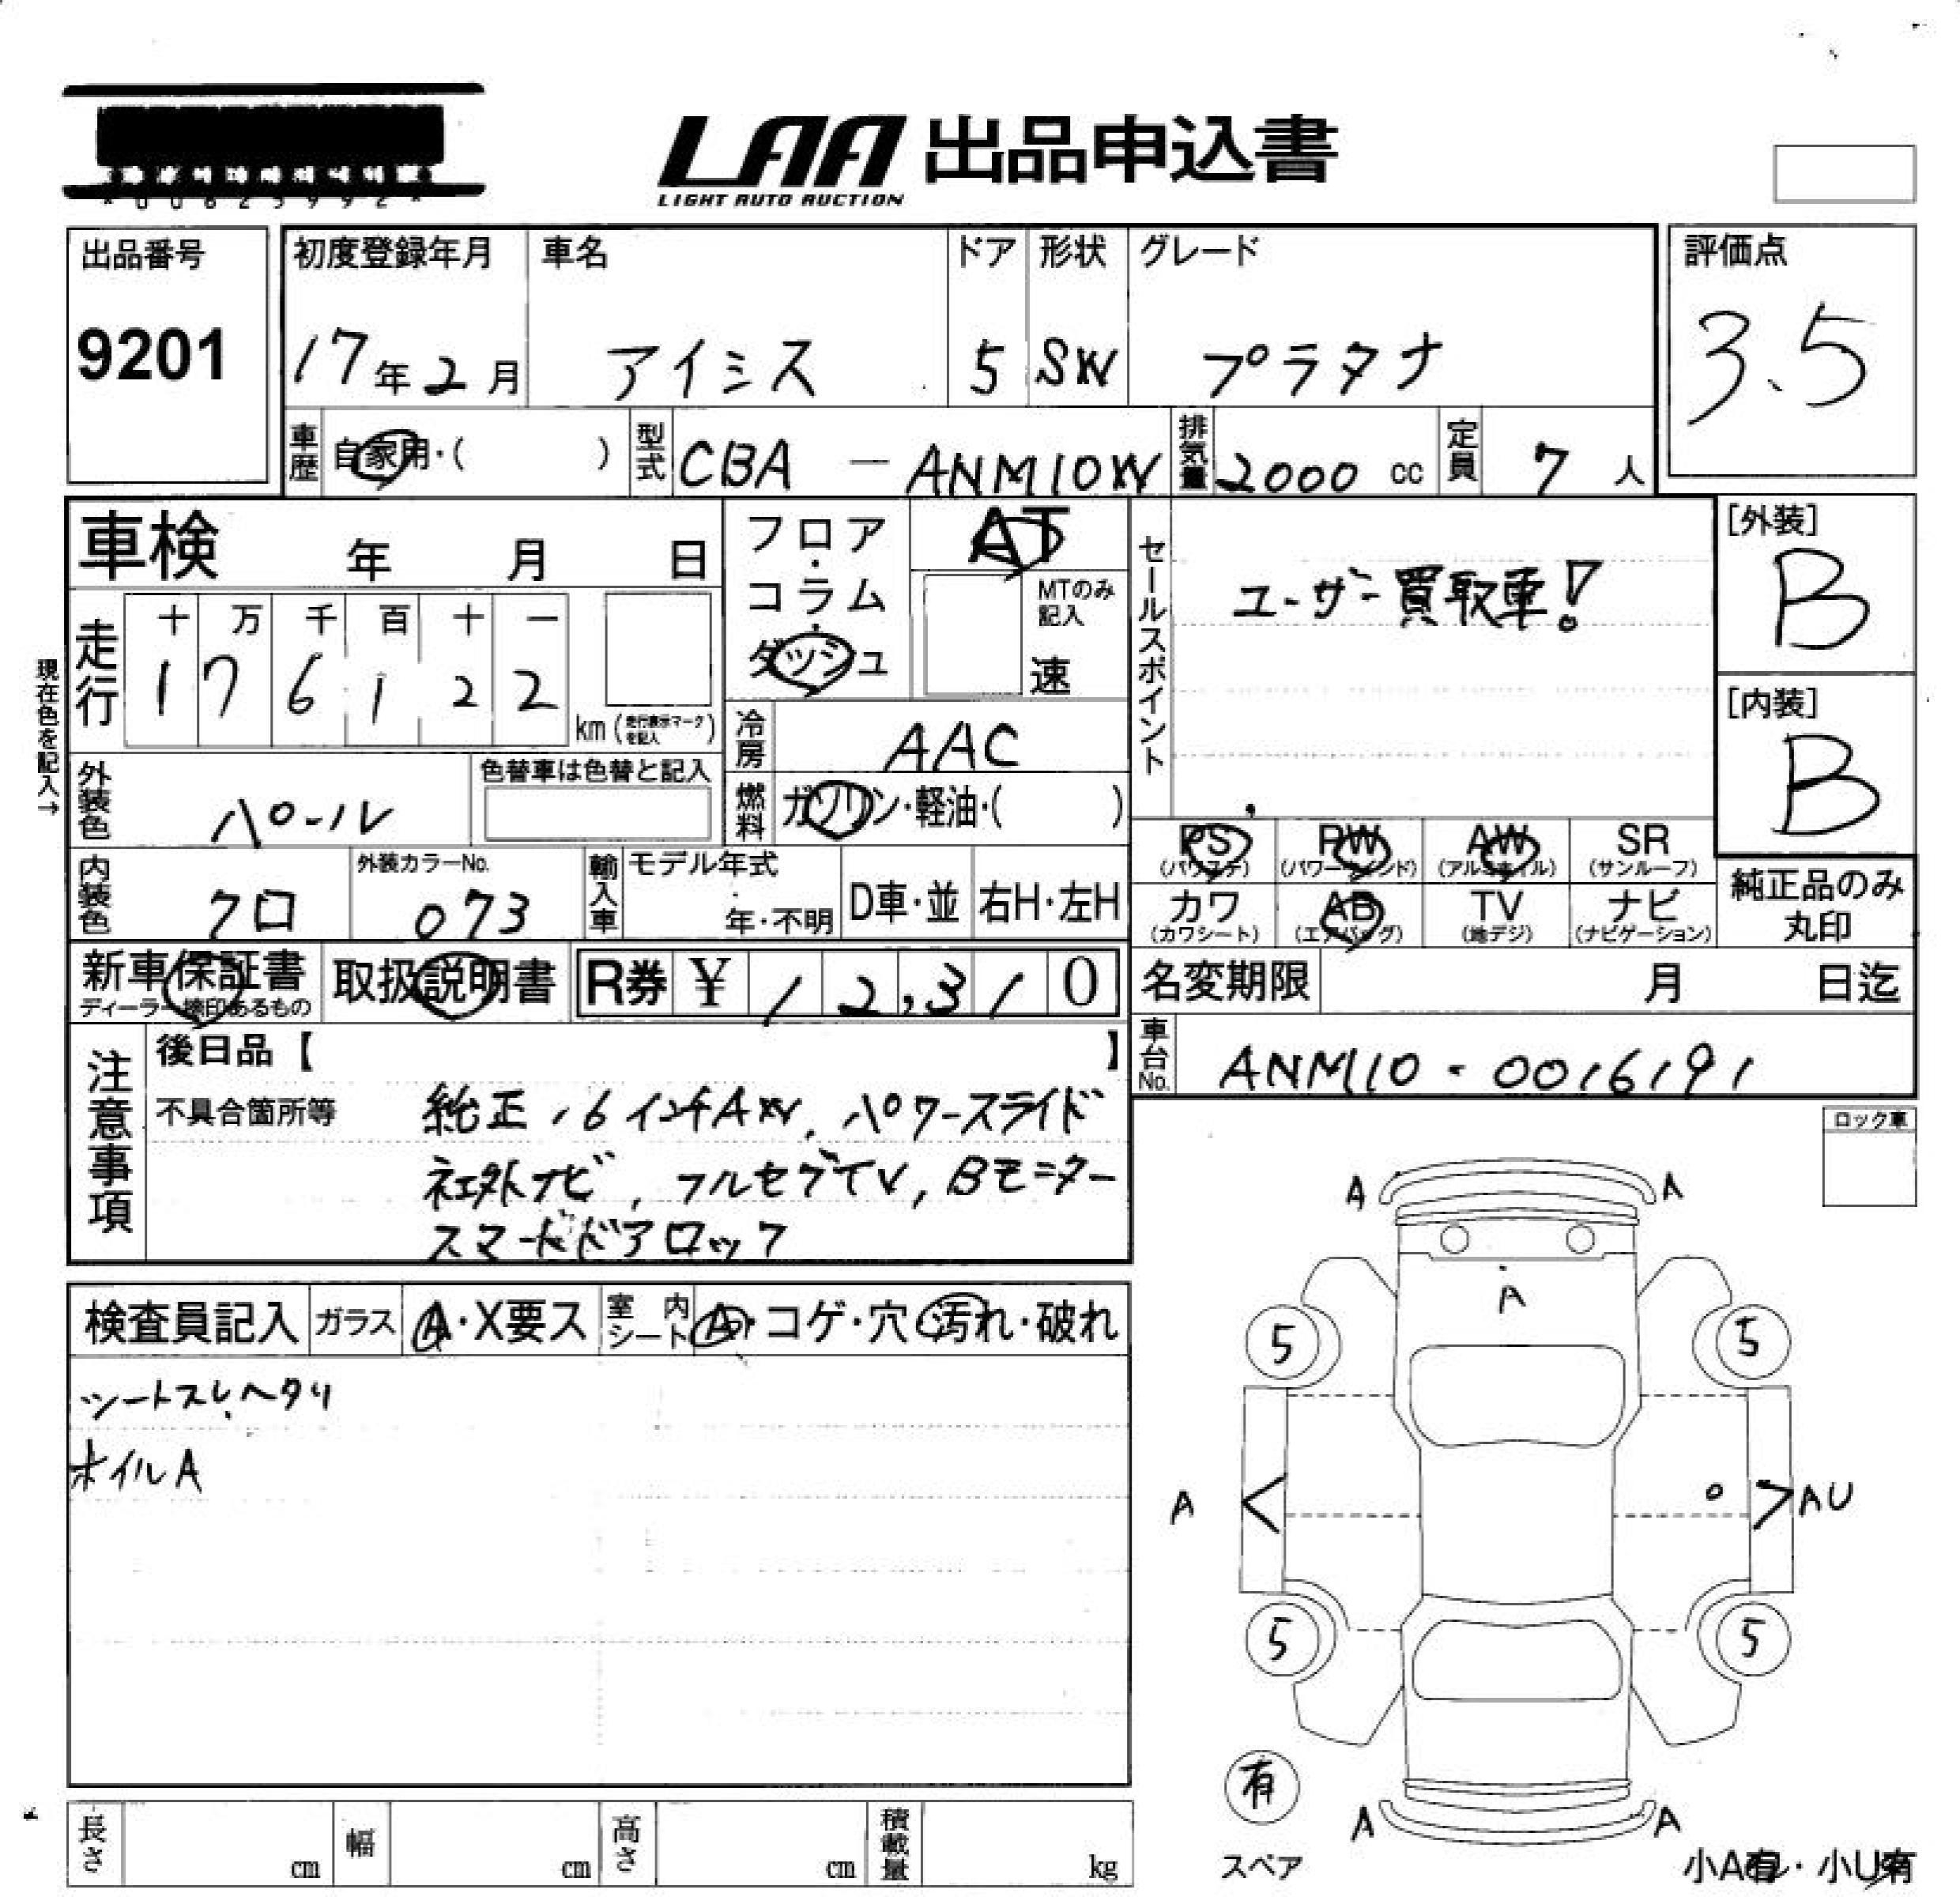 LAA 出品申込書
LIGHT AUTO AUCTION
出品番号
9201
初度登録年月
17年2月
車名
アイシス
ドア
5
形状
SW
グレード
プラタナ
評価点
3.5
車歴
自家用・( )
型式
CBA - ANM10W
排気量
2000 cc
定員
7 人
車検 年 月 日
フロア・コラム・ダッシュ
AT
MTのみ記入
速
セールスポイント
ユーザー買取車!
[外装]
B
[内装]
B
現在色を記入→
走行
十 万 千 百 十 一
1 7 6 1 2 2
km (走行表示マークを記入)
冷房
AAC
外装色
パール
色替車は色替と記入
燃料
ガソリン・軽油・( )
内装色
クロ
外装カラーNo.
073
輸入車
モデル年式
年・不明
D車・並
右H・左H
PS
(パワステ)
PW
(パワーウィンド)
AW
(アルミホイル)
SR
(サンルーフ)
カワ
(カワシート)
AB
(エアバッグ)
TV
(地デジ)
ナビ
(ナビゲーション)
純正品のみ
丸印
新車保証書
ディーラー捺印あるもの
取扱説明書
R券 ¥ 12,310
名変期限 月 日迄
車台No.
ANM10-0016191
注意事項
後日品【 】
不具合箇所等
純正16インチAW, パワースライド
社外ナビ, フルセグTV, Bモニター
スマートドアロック
ロック車
検査員記入
ガラス
A・X要ス
室内シート
A・コゲ・穴・汚れ・破れ
シートスレ、ヘタリ
ホイルA
A A
A
5 5
A AU
5 5
有
スペア
A A
小A有・小U有
長さ cm
幅 cm
高さ cm
積載量 kg